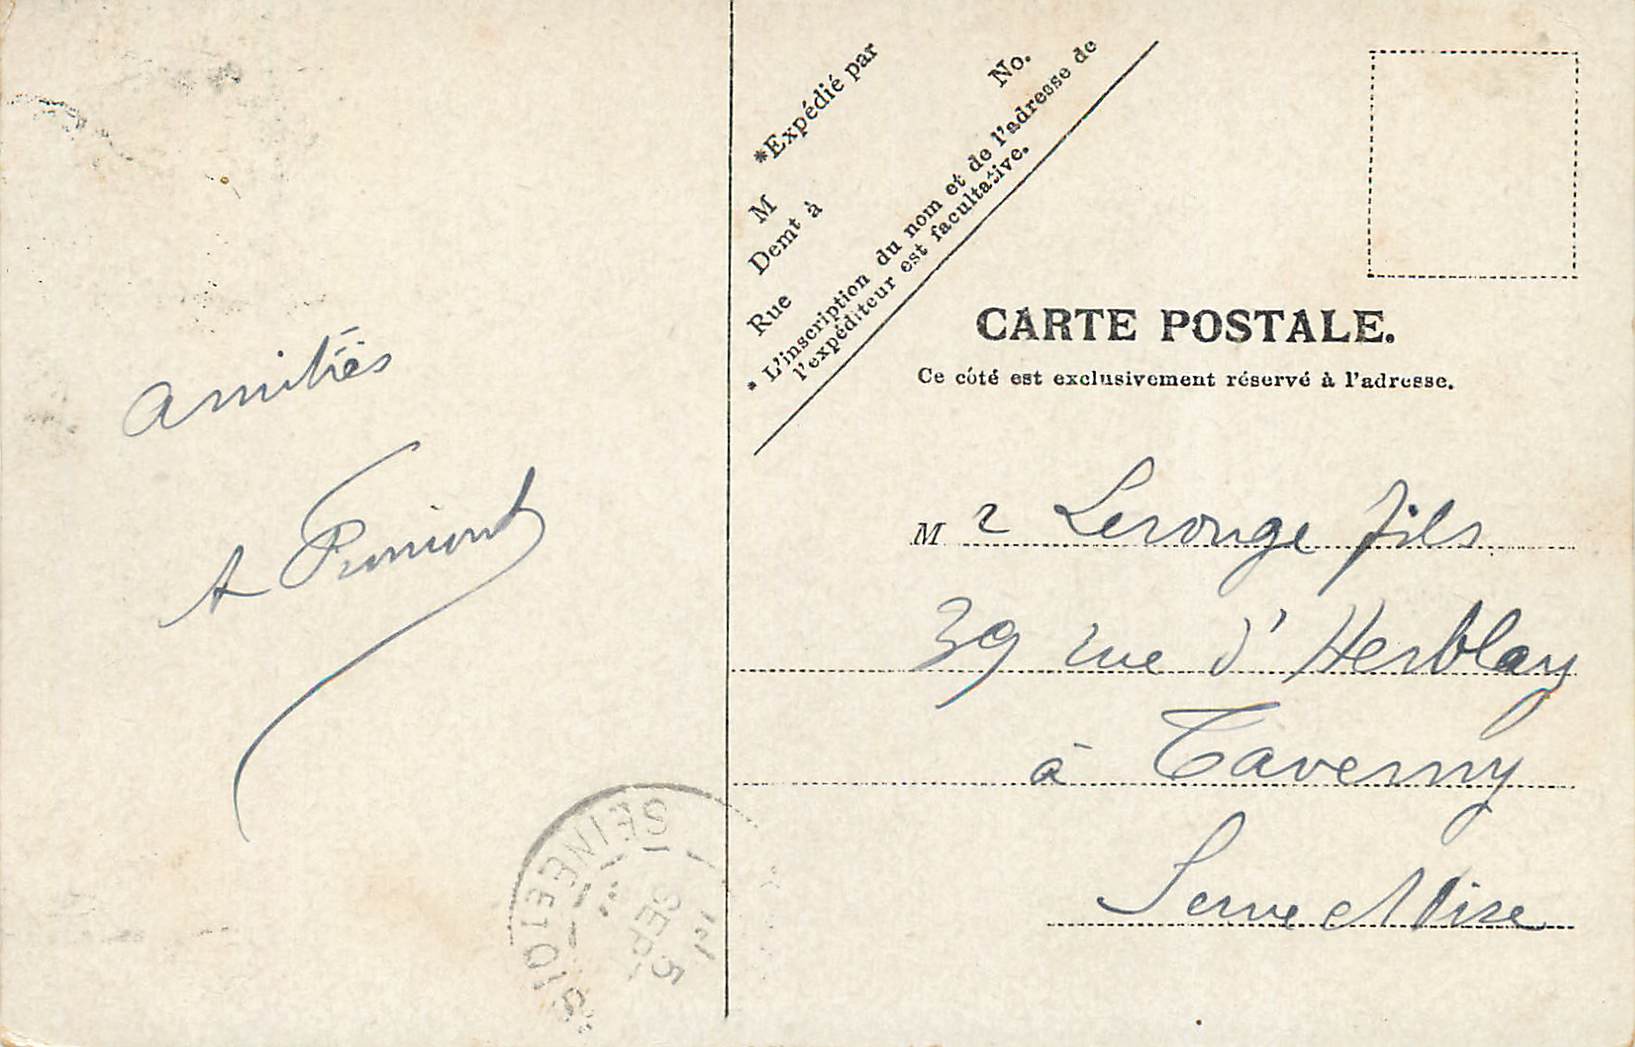 Amitiés
A Primont
*Expédié par
No.
M
Demt à
Rue
* L'inscription du nom et de l'adresse de
l'expéditeur est facultative.
CARTE POSTALE.
Ce côté est exclusivement réservé à l'adresse.
M r Lerouge fils
39 rue d'Herblay
à Taverny
Seine et Oise
SEINE ET OISE
5
SEPT